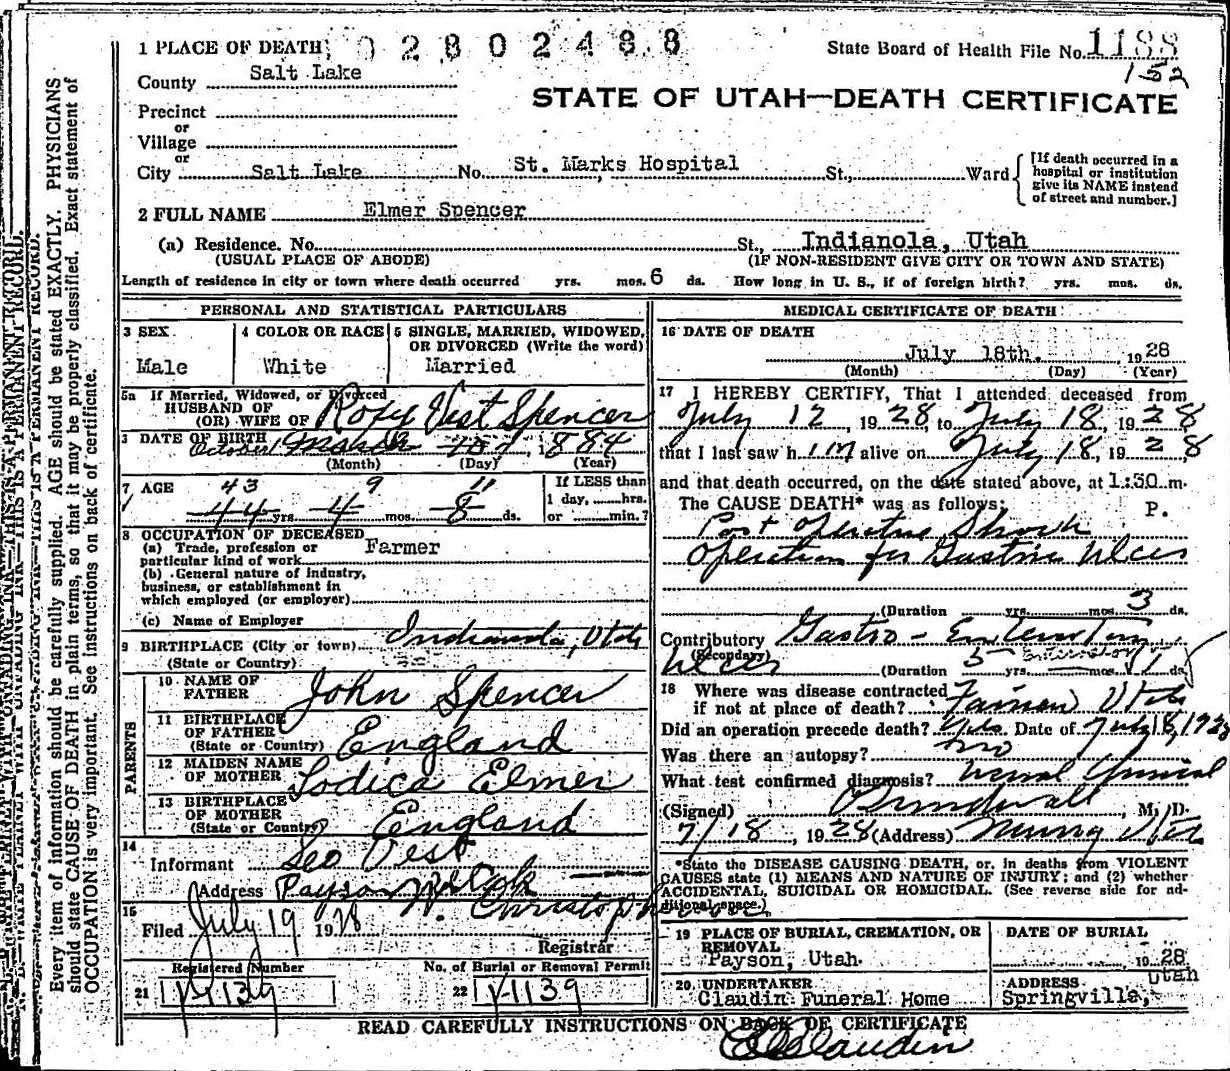 1 PLACE OF DEATH 02802488 State Board of Health File No. 1188
152
County Salt Lake
STATE OF UTAH—DEATH CERTIFICATE
Precinct
or
Village
or
City Salt Lake No. St. Marks Hospital St., Ward
[If death occurred in a
hospital or institution
give its NAME instead
of street and number.]
2 FULL NAME Elmer Spencer
(a) Residence. No. St., Indianola, Utah
(USUAL PLACE OF ABODE) (IF NON-RESIDENT GIVE CITY OR TOWN AND STATE)
Length of residence in city or town where death occurred yrs. mos. 6 ds. How long in U. S., if of foreign birth? yrs. mos. ds.
PERSONAL AND STATISTICAL PARTICULARS
3 SEX 4 COLOR OR RACE 5 SINGLE, MARRIED, WIDOWED,
OR DIVORCED (Write the word)
Male White Married
5a If Married, Widowed, or Divorced
HUSBAND OF
(OR) WIFE OF Roxy Vest Spencer
DATE OF BIRTH October 1884
(Month) (Day) (Year)
7 AGE 43 9 11 If LESS than
1 day, hrs.
44 yrs. 4 mos. 8 ds. or min.?
8 OCCUPATION OF DECEASED
(a) Trade, profession or
particular kind of work Farmer
(b) General nature of industry,
business, or establishment in
which employed (or employer)
(c) Name of Employer
9 BIRTHPLACE (City or town) Indianola, Utah
(State or Country)
PARENTS
10 NAME OF
FATHER John Spencer
11 BIRTHPLACE
OF FATHER
(State or Country) England
12 MAIDEN NAME
OF MOTHER Lodica Elmer
13 BIRTHPLACE
OF MOTHER
(State or Country) England
14
Informant Geo Vest
Address Payson
15
Filed July 19 1928
Registrar
Registered Number No. of Burial or Removal Permit
21 1139 22 1139
MEDICAL CERTIFICATE OF DEATH
16 DATE OF DEATH
July 18th. 1928
(Month) (Day) (Year)
17 I HEREBY CERTIFY, That I attended deceased from
July 12, 1928, to July 18, 1928
that I last saw him alive on July 18, 1928,
and that death occurred, on the date stated above, at 1:50 m.
The CAUSE DEATH* was as follows: P.
Post Operative Shock
Operation for Gastric Ulcer
(Duration yrs. mos. 3 ds.
Contributory Gastro-
(Secondary)
Ulcer (Duration 5 yrs. mos. ds.
18 Where was disease contracted
if not at place of death? Utah
Did an operation precede death? Yes Date of July 18, 1928
Was there an autopsy? no
What test confirmed diagnosis?
(Signed) M. D.
7/18, 1928 (Address) Murray Utah
*State the DISEASE CAUSING DEATH, or. in deaths from VIOLENT
CAUSES state (1) MEANS AND NATURE OF INJURY; and (2) whether
ACCIDENTAL, SUICIDAL OR HOMICIDAL. (See reverse side for ad-
ditional space.)
19 PLACE OF BURIAL, CREMATION, OR
REMOVAL DATE OF BURIAL
Payson, Utah. 1928
20 UNDERTAKER ADDRESS Utah
Claudin Funeral Home Springville,
READ CAREFULLY INSTRUCTIONS ON BACK OF CERTIFICATE
Claudin
Every item of information should be carefully supplied. AGE should be stated EXACTLY. PHYSICIANS
should state CAUSE OF DEATH in plain terms, so that it may be properly classified. Exact statement of
OCCUPATION is very important. See instructions on back of certificate.